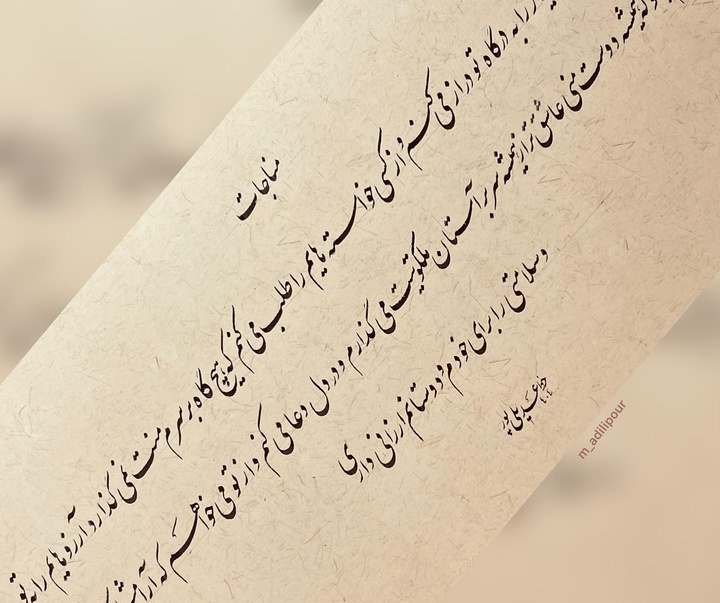 مناجات
را به درگاه تو دراز می کنم و از کسی خواسته هایم را طلب می کنم که هیچ گاه بر سرم منت نمی گذارد و آرزوهایم را به تو
همیشه دوست منی عاشق تر از همیشه سر بر آستان ملکوتیت می گذارم و در دل دعا می کنم و از تو می خواهم که آرامش
و سلامتی را برای خودم و دوستانم ارزانی داری
عدیلی پور
m_adilipour